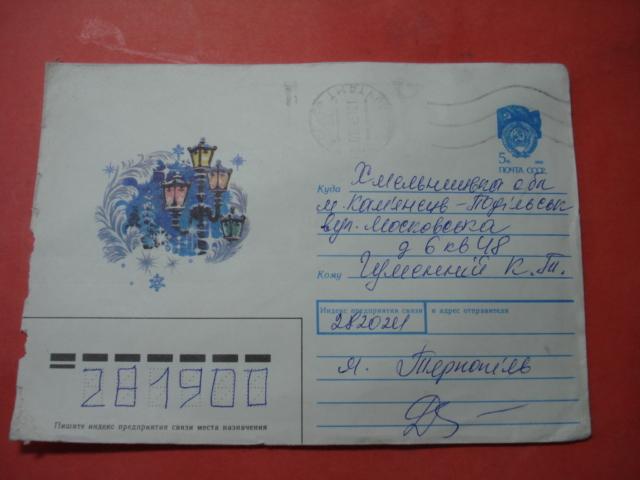 5к
ПОЧТА СССР
Куда Хмельницька обл
м. Кам'янець-Подільськ
вул. Московська
д 6 кв 48
Кому Гуменній К. Т.
Индекс предприятия связи и адрес отправителя
282021
м. Тернопіль
281900
Пишите индекс предприятия связи места назначения